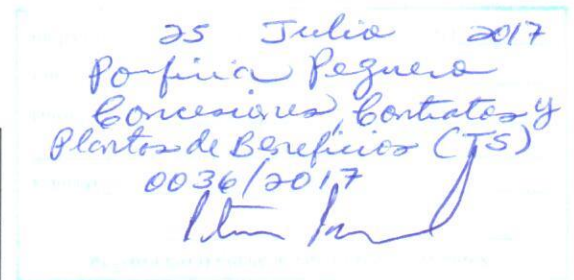 25 Julio 2017
Porfiria Peguero
Concesiones, Contratos y
Plantas de Beneficios (TS)
0036/2017